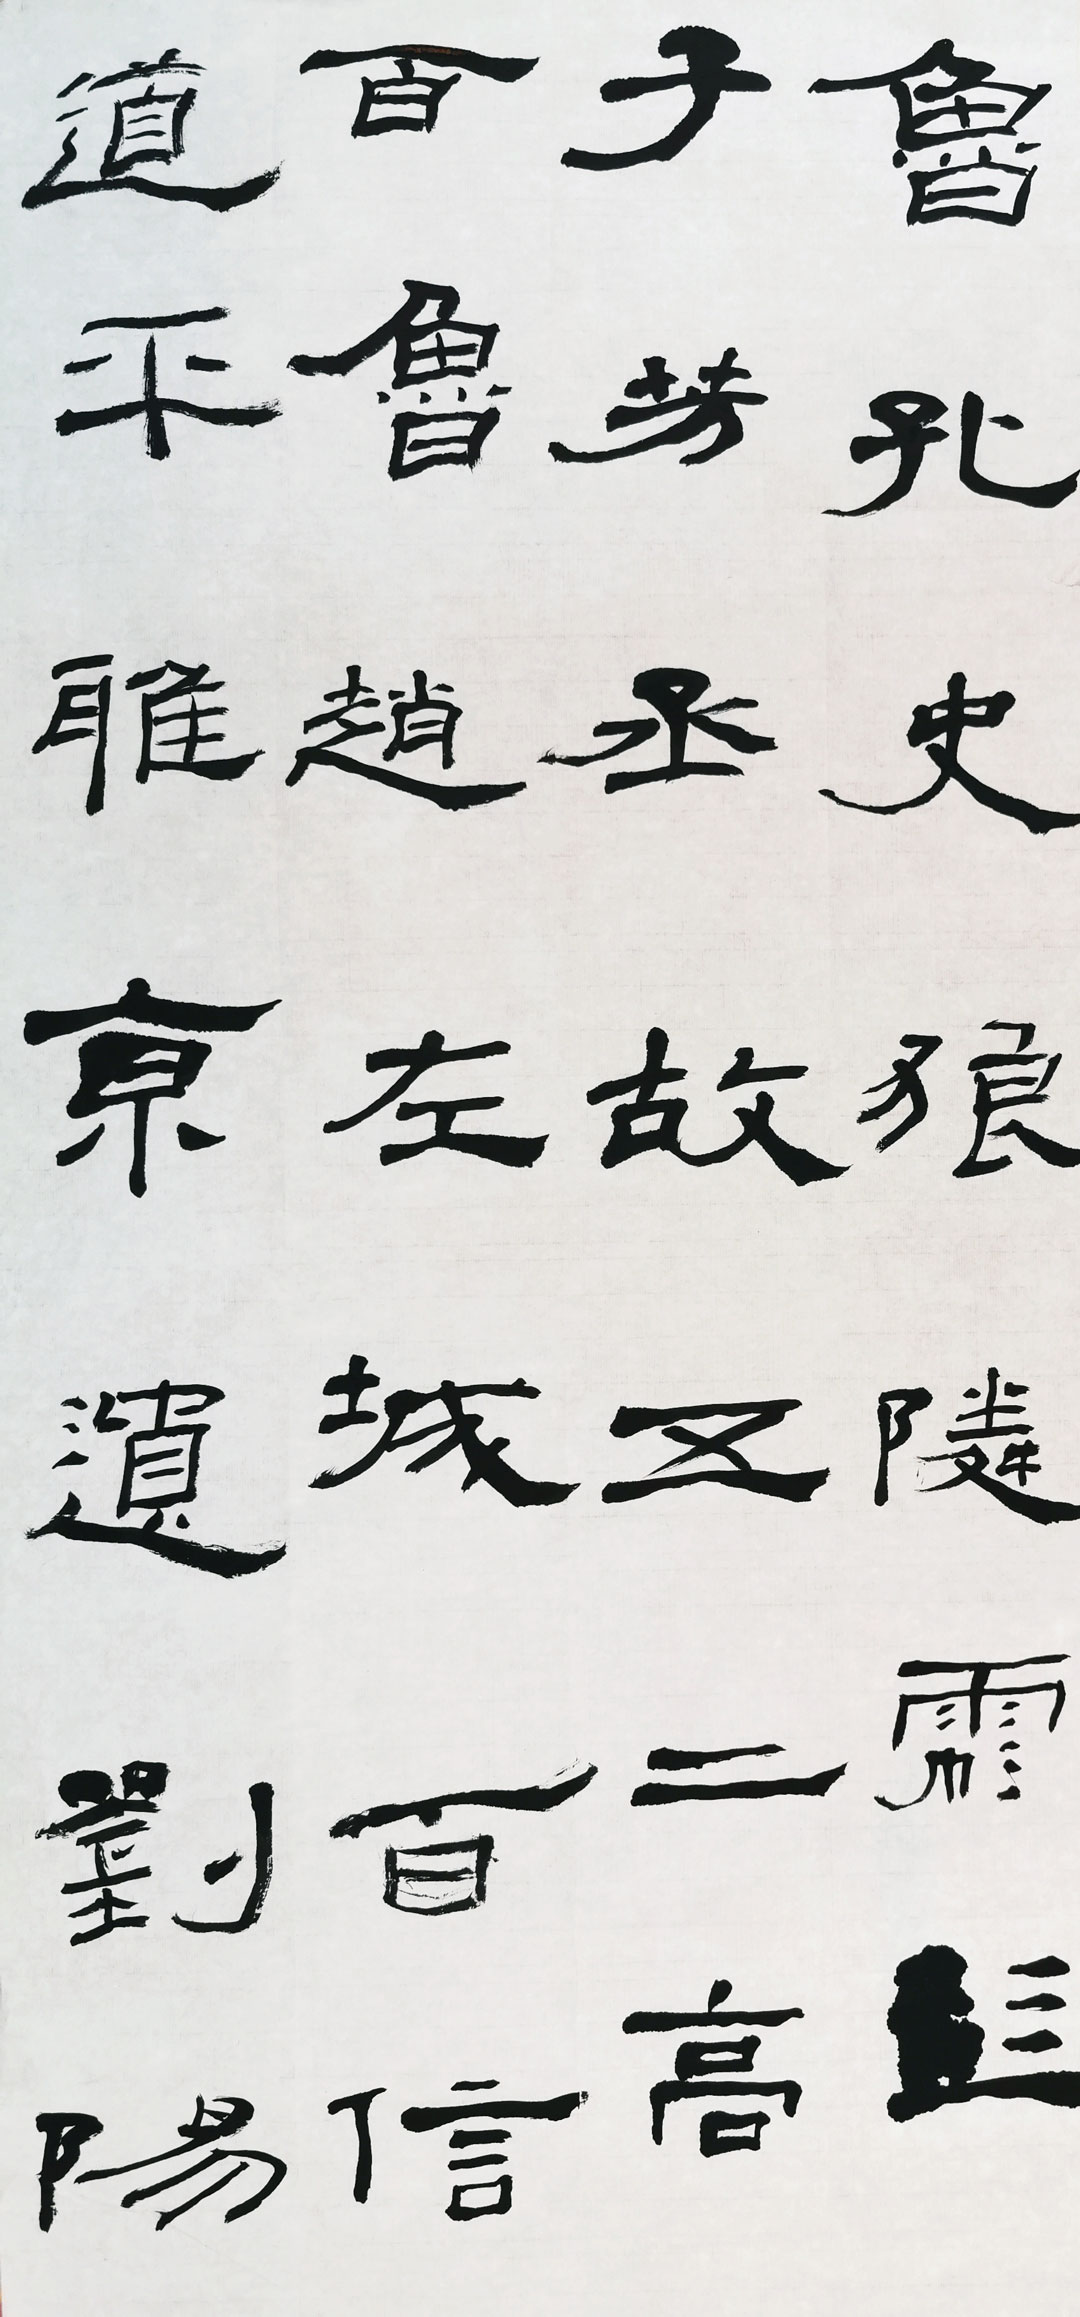 魯孔史狼隣彭
子芳丞故五二高
百魯趙左城百信
道平雅京遺劉陽